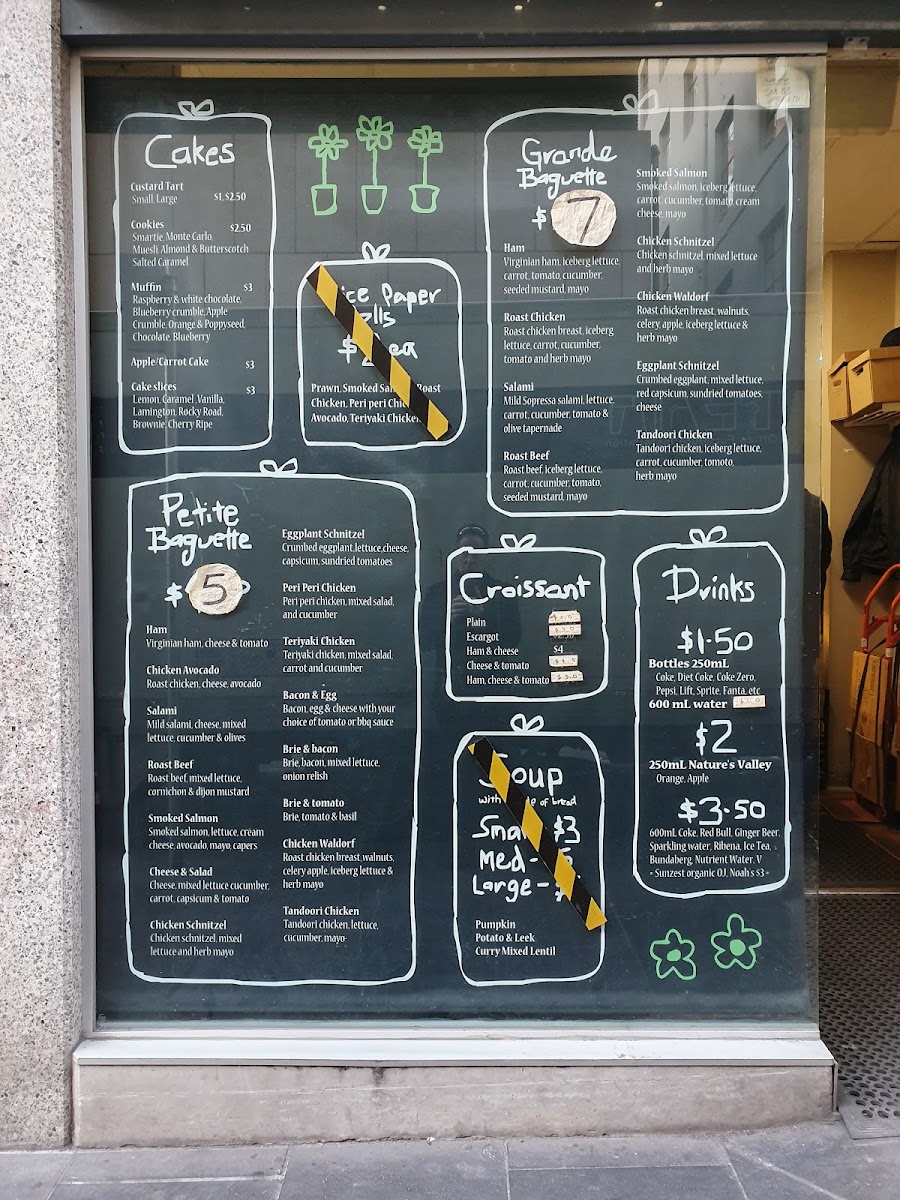 Cakes
Custard Tart
Small, Large $1, $2.50
Cookies $2.50
Smartie, Monte Carlo
Muesli, Almond & Butterscotch
Salted Caramel
Muffin $3
Raspberry & white chocolate,
Blueberry crumble, Apple
Crumble, Orange & Poppyseed,
Chocolate, Blueberry
Apple/Carrot Cake $3
Cake slices $3
Lemon, Caramel, Vanilla,
Lamington, Rocky Road,
Brownie, Cherry Ripe
ice Paper
lls
$ ea
Prawn, Smoked Roast
Chicken, Peri peri
Avocado, Teriyaki Chicken
Grande
Baguette
$ 7
Ham
Virginian ham, iceberg lettuce,
carrot, tomato, cucumber,
seeded mustard, mayo
Roast Chicken
Roast chicken breast, iceberg
lettuce, carrot, cucumber,
tomato and herb mayo
Salami
Mild Sopressa salami, lettuce,
carrot, cucumber, tomato &
olive tapernade
Roast Beef
Roast beef, iceberg lettuce,
carrot, cucumber, tomato,
seeded mustard, mayo
Smoked Salmon
Smoked salmon, iceberg lettuce,
carrot, cucumber, tomato cream
cheese, mayo
Chicken Schnitzel
Chicken schnitzel, mixed lettuce
and herb mayo
Chicken Waldorf
Roast chicken breast, walnuts,
celery, apple, iceberg lettuce &
herb mayo
Eggplant Schnitzel
Crumbed eggplant, mixed lettuce,
red capsicum, sundried tomatoes,
cheese
Tandoori Chicken
Tandoori chicken, iceberg lettuce,
carrot, cucumber, tomoto,
herb mayo
Petite
Baguette
$ 5
Ham
Virginian ham, cheese & tomato
Chicken Avocado
Roast chicken, cheese, avocado
Salami
Mild salami, cheese, mixed
lettuce, cucumber & olives
Roast Beef
Roast beef, mixed lettuce,
cornichon & dijon mustard
Smoked Salmon
Smoked salmon, lettuce, cream
cheese, avocado, mayo, capers
Cheese & Salad
Cheese, mixed lettuce cucumber,
carrot, capsicum & tomato
Chicken Schnitzel
Chicken schnitzel, mixed
lettuce and herb mayo
Eggplant Schnitzel
Crumbed eggplant,lettuce,cheese,
capsicum, sundried tomatoes
Peri Peri Chicken
Peri peri chicken, mixed salad,
and cucumber
Teriyaki Chicken
Teriyaki chicken, mixed salad,
carrot and cucumber
Bacon & Egg
Bacon, egg & cheese with your
choice of tomato or bbq sauce
Brie & bacon
Brie, bacon, mixed lettuce,
onion relish
Brie & tomato
Brie, tomato & basil
Chicken Waldorf
Roast chicken breast,walnuts,
celery apple, iceberg lettuce &
herb mayo
Tandoori Chicken
Tandoori chicken, lettuce,
cucumber, mayo
Croissant
Plain
Escargot
Ham & cheese $4
Cheese & tomato
Ham, cheese & tomato
Soup
with of bread
Sma $3
Med -
Large -
Pumpkin
Potato & Leek
Curry Mixed Lentil
Drinks
$1.50
Bottles 250mL
Coke, Diet Coke, Coke Zero,
Pepsi, Lift, Sprite, Fanta, etc
600 mL water
$2
250mL Nature's Valley
Orange, Apple
$3.50
600mL Coke, Red Bull, Ginger Beer,
Sparkling water, Ribena, Ice Tea,
Bundaberg, Nutrient Water, V
- Sunzest organic OJ, Noah s $3 -